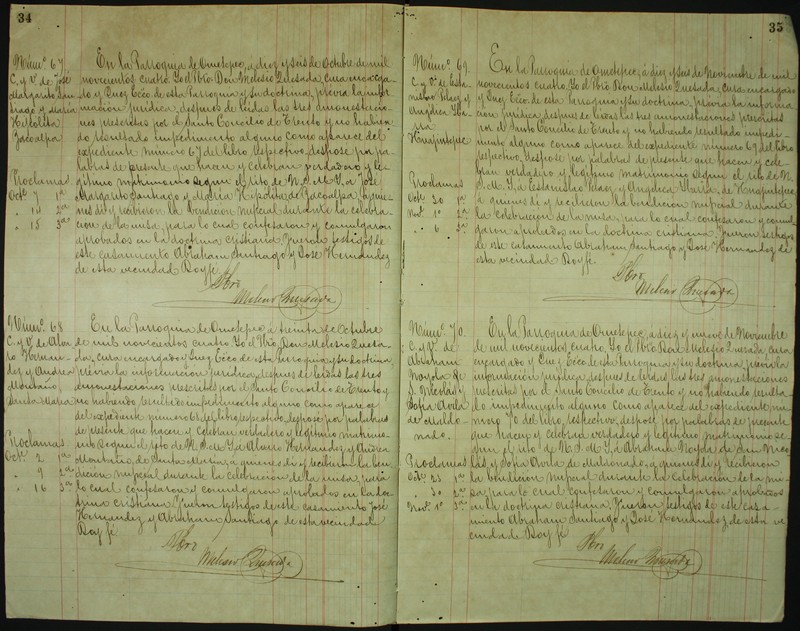 34
Núm.º 67
C. y V. de José
Margarito San
tiago y María
Hipolita
Zacoalpa
Proclamas
Oct.e 7 1ª
" 14 2ª
" 15 3ª
En la Parroquia de Ometepec, a diez y seis de Octubre de mil
novecientos cuatro Yo el Pbro Don Melesio Quesada, cura encarga
do y Juez Ecco de esta Parroquia y su doctrina, previa la infor
mación jurídica, despues de leidas las tres amonestacio
nes prescritas por el Santo Concilio de Trento y no habien
do resultado impedimento alguno como aparece del
expediente número 67 del libro respectivo, desposé por pa
labras de presente que hacen y celebran verdadero y le
gítimo matrimonio segun el rito de N. S. M. Y. a José
Margarito Santiago y María Hipolita de Zacoalpa, a quie
nes di y recibieron la bendicion nupcial durante la celebra
ción de la misa, para lo cual confesaron y comulgaron
aprobados en la doctrina cristiana, fueron testigos de
este casamiento Abraham Santiago y José Hernandez
de esta vecindad Doy fe.
Pbro
Melesio Quesada
Núm.º 68
C. y V. de Alva
ro Hernan
dez y Andrea
Montaño,
Santa María
Proclamas
Oct.e 2 1ª
" 9 2ª
" 16 3ª
En la Parroquia de Ometepec, á treinta de Octubre
de mil novecientos cuatro, Yo el Pbro. Don Melesio Quesa
da, cura encargado y Juez Ecco de esta Parroquia y su doctrina
previa la información jurídica, despues de leidas las tres
amonestaciones prescritas por el Santo Concilio de Trento y
no habiendo resultado impedimento alguno como aparece
del expediente número 68 del libro respectivo, desposé por palabras
de presente que hacen y celebran verdadero y legítimo matrimo
nio segun el rito de N. S. M. Y. a Alvaro Hernandez y Andrea
Montaño, de Santa María, á quienes di y recibieron la ben
dición nupcial durante la celebración de la misa, para
lo cual confesaron y comulgaron aprobados en la doc
trina cristiana. Fueron testigos de este casamiento José
Hernandez y Abraham Santiago de esta vecindad
Doy fe
Pbro
Melesio Quesada
35
Núm.º 69.
C. y V. de Esta
nislao
Angelica
Huajintepec
Proclamas
Oct.e 30 1ª
Nov.e 1º 2ª
" 6 3ª
En la Parroquia de Ometepec, á diez y seis de Noviembre de mil
novecientos cuatro Yo el Pbro Don Melesio Quesada, cura encargado
y Juez Ecco. de esta Parroquia y su doctrina, previa la informa
ción jurídica despues de leidas las tres amonestaciones prescritas
por el Santo Concilio de Trento y no habiendo resultado impedi
mento alguno como aparece del expediente número 69 del libro
respectivo, desposé por palabras de presente que hacen y cele
bran verdadero y legítimo matrimonio segun el rito de N.
S. M. Y. a Estanislao y Angelica de Huajintepec,
á quienes di y recibieron la bendición nupcial durante
la celebración de la misa, para lo cual confesaron y comul
garon aprobados en la doctrina cristiana, fueron testigos
de este casamiento Abraham Santiago y José Hernandez de
esta vecindad Doy fe.
Pbro
Melesio Quesada
Núm.º 70.
C. y V. de
Abraham
Noyola de
S. Nicolas y
Sofia Avila
de Maldo
nado.
Proclamas
Oct.e 23 1ª
" 30 2ª
Nov.e 1º 3ª
En la Parroquia de Ometepec, a diez y nueve de Noviembre
de mil novecientos cuatro, Yo el Pbro Don Melesio Quesada, cura
encargado y Juez Ecco. de esta Parroquia y su doctrina, previa la
información jurídica, despues de leidas las tres amonestaciones
prescritas por el Santo Concilio de Trento y no habiendo resulta
do impedimento alguno como aparece del expediente nú
mero 70 del libro respectivo, desposé por palabras de presente
que hacen y celebran verdadero y legítimo matrimonio se
gun el rito de N. S. M. Y. á Abraham Noyola de San Nico
las y Sofia Avila de Maldonado, á quienes di y recibieron
la bendición nupcial durante la celebración de la mi
sa, para lo cual confesaron y comulgaron aprobados
en la doctrina cristiana, fueron testigos de este casa
miento Abraham Santiago y José Hernandez de esta ve
cindad Doy fe
Pbro
Melesio Quesada